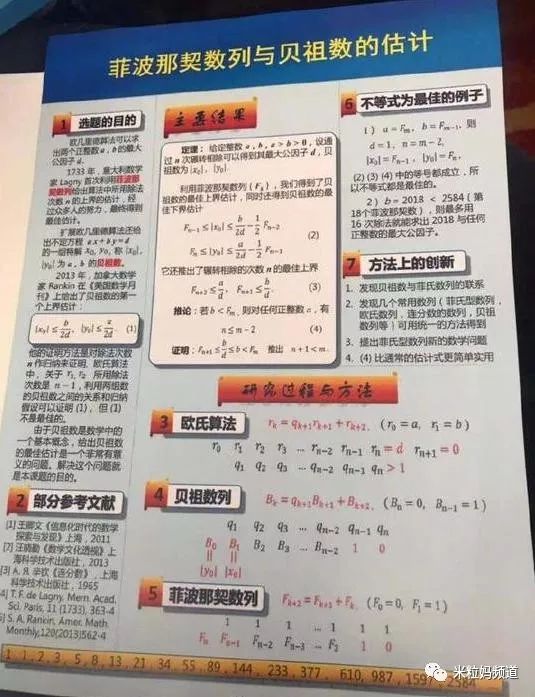 菲波那契数列与贝祖数的估计
1 选题的目的
欧几里德算法可以求
出两个正整数 a, b 的最大
公因子 d.
1733 年，意大利数学
家 Lagny 首次利用菲波那
契数列给出算法中所用除法
次数 n 的上界的估计，经
过众多人的努力，最终得到
最佳估计。
扩展欧几里德算法还给
出不定方程 ax + by = d
的一组特解 x₀, y₀, 称 |x₀|,
|y₀| 为 a, b 的贝祖数。
2013 年，加拿大数学
家 Rankin 在《美国数学月
刊》上给出了贝祖数的第一
个上界估计：
|x₀| ≤ b/2d, |y₀| ≤ a/2d. (1)
他的证明方法是对除法次数
n 作归纳来证明. 欧氏算法
中，关于 r₁, r₂ 所用除法
次数是 n − 1，利用两组数
的贝祖数之间的关系和归纳
假设可以证明 (1)，但 (1)
不是最佳的。
由于贝祖数是数学中的
一个基本概念，给出贝祖数
的最佳估计是一个非常有意
义的问题。解决这个问题就
是本课题的目的。
2 部分参考文献
[1] 王卿文《信息化时代的数学
探索与发现》上海，2011
汪晓勤《数学文化透视》上
海科学技术出版社，2013
[3] A. Я. 辛钦《连分数》，上海
科学技术出版社，1965
4] T. F. de Lagny, Mem. Acad.
Sci. Paris, 11 (1733), 363-4
5] S. A. Rankin, Amer. Math.
Monthly,120(2013)562-4
主要结果
定理：给定整数 a, b, a > b > 0，设通
过 n 次辗转相除可以得到其最大公因子 d，贝
祖数为 |x₀|, |y₀|.
利用菲波那契数列 (Fₖ)，我们得到了贝
祖数的最佳上界估计，同时还得到贝祖数的最
佳下界估计
Fₙ₋₁ ≤ |x₀| ≤ b/2d − 1/2 Fₙ₋₂
(2)
Fₙ ≤ |y₀| ≤ a/2d − 1/2 Fₙ₋₁
它还推出了辗转相除的次数 n 的最佳上界
Fₙ₊₂ ≤ a/d, Fₙ₊₁ ≤ b/d. (3)
推论：若 b < Fₘ，则对任何正整数 a，有
n ≤ m − 2 (4)
证明：Fₙ₊₁ ≤ b/d ≤ b < Fₘ 推出 n + 1 < m.
6 不等式为最佳的例子
1) a = Fₘ, b = Fₘ₋₁, 则
d = 1, n = m − 2,
|x₀| = Fₙ₋₁, |y₀| = Fₙ.
(2) (3) (4) 中的等号都成立，所
以不等式都是最佳的。
2) b = 2018 < 2584 (第
18个菲波那契数)，则最多用
16 次除法就能求出 2018 与任何
正整数的最大公因子。
7 方法上的创新
1. 发现贝祖数与菲氏数列的联系
2. 发现几个常用数列（菲氏型数列，
欧氏数列，连分数的数列，贝祖
数列等）可用统一的方法得到
3. 提出菲氏型数列新的数学问题
4. (4) 比通常的估计式更简单实用
研究过程与方法
3 欧氏算法 rₖ = qₖ₊₁rₖ₊₁ + rₖ₊₂, (r₀ = a, r₁ = b)
r₀ r₁ r₂ r₃ ... rₙ₋₂ rₙ₋₁ rₙ = d rₙ₊₁ = 0
q₁ q₂ q₃ ... qₙ₋₂ qₙ₋₁ qₙ > 1
4 贝祖数列 Bₖ = qₖ₊₁Bₖ₊₁ + Bₖ₊₂, (Bₙ = 0, Bₙ₋₁ = 1)
q₁ q₂ q₃ ... qₙ₋₂ qₙ₋₁ qₙ
B₀ B₁ B₂ B₃ ... Bₙ₋₂ 1 0
|| ||
|y₀| |x₀|
5 菲波那契数列 Fₖ₊₂ = Fₖ₊₁ + Fₖ, (F₀ = 0, F₁ = 1)
1 1 1 ... 1 1 1
Fₙ Fₙ₋₁ Fₙ₋₂ Fₙ₋₃ ... F₂ 1 0
1, 1, 2, 3, 5, 8, 13, 21, 34, 55, 89, 144, 233, 377, 610, 987, 1597, 2584
米粒妈频道